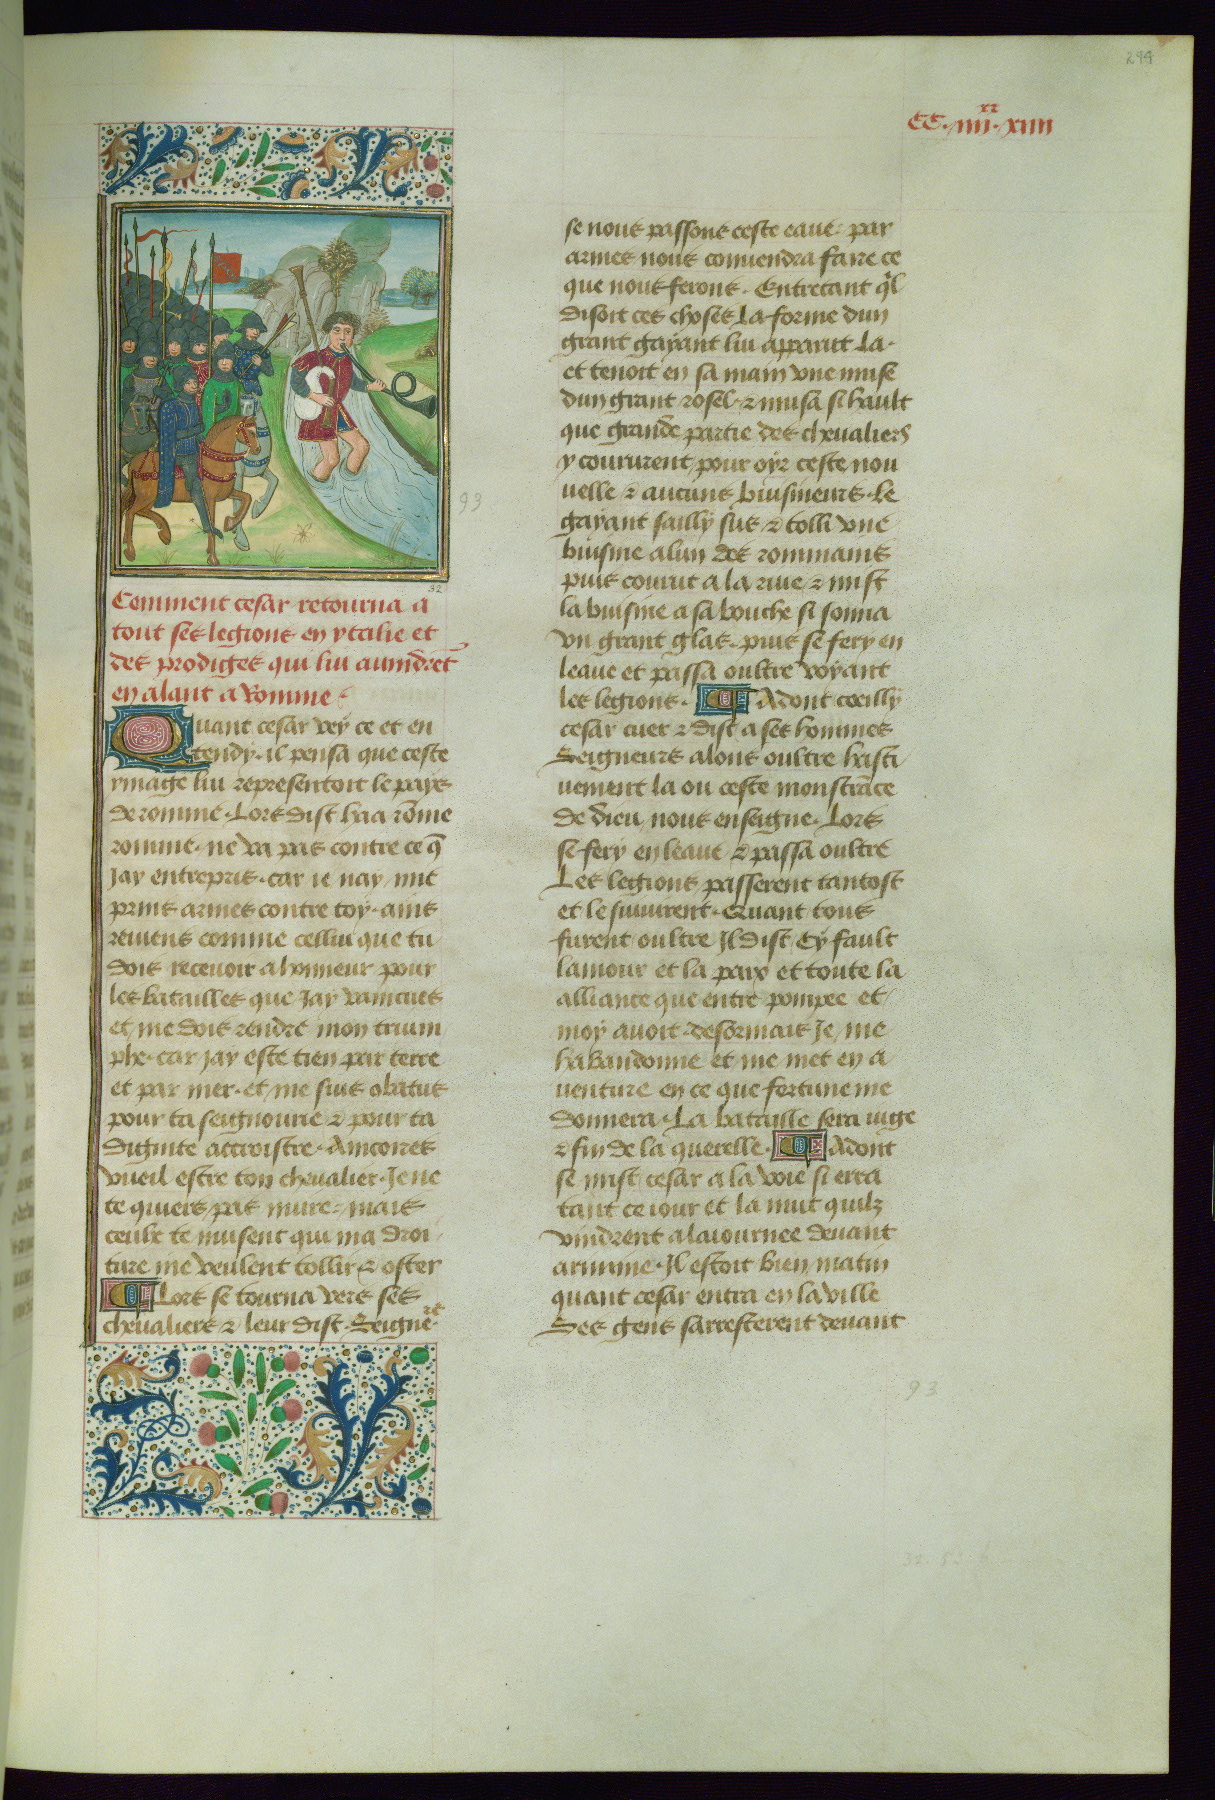 294
CC·iiii·xx·xiiii
93
32
Comment cesar retourna a
tout ses legions en ytalie et
des prodiges qui lui auindrent
en alant a Romme
Quant cesar vey ce et en
tendy· il pensa que ceste
ymage lui representoit le pays
de romme· Lors dist haa rōme
romme· ne va pas contre ce q̄
Jay entrepris· car ie nay mie
prins armes contre toy· ains
reuiens comme cellui que tu
dois receuoir a honneur pour
les batailles que Jay vaincues
et me dois rendre mon trium
phe· car jay este tien par terre
et par mer· et me suis obatus
pour ta seignourie et pour ta
dignite accroistre· Aincores
vueil estre ton cheualier· Je ne
te quiers pas nuire· mais
ceulx te nuisent qui ma droi
ture me veulent tollir et oster
Lors se tourna vers ses
cheualiers et leur dist· Seigneʳˢ
se nous passons ceste eaue· par
armes nous conuiendra faire ce
que nous ferons· Entretant q̄l
disoit ces choses la forme dun
grant gayant lui apparut la·
et tenoit en sa main vne muse
dun grant rosel· et musa si hault
que grande partie des cheualiers
y coururent pour oyr ceste nou
uelle et aucuns buisineurs· le
gayant sailly sus et tolli vne
buisine a lun des rommains
puis courut a la riue et mist
la buisine a sa bouche si sonna
vn grant glas· puis se fery en
leaue et passa oultre voyant
les legions· Adont coeilly
cesar cuer et dist a ses hommes
Seigneurs alons oultre hasti
uement la ou ceste monstrāce
de dieu nous enseigne· Lors
se fery en leaue et passa oultre
Les legions passerent tantost
et le suiuirent· Quant tous
furent oultre Jl dist Cy fault
lamour et la paix et toute la
alliance que entre pompee et
moy auoit desormais Je me
habandonne et me met en a
uenture en ce que fortune me
donnera· La bataille sera iuge
et fin de la querelle· Adont
se mist cesar a la voie si erra
tant ce iour et la nuit quilz
vindrent a lajournee deuant
arimine· Jl estoit bien matin
quant cesar entra en la ville
Ses gens sarresterent deuant
93